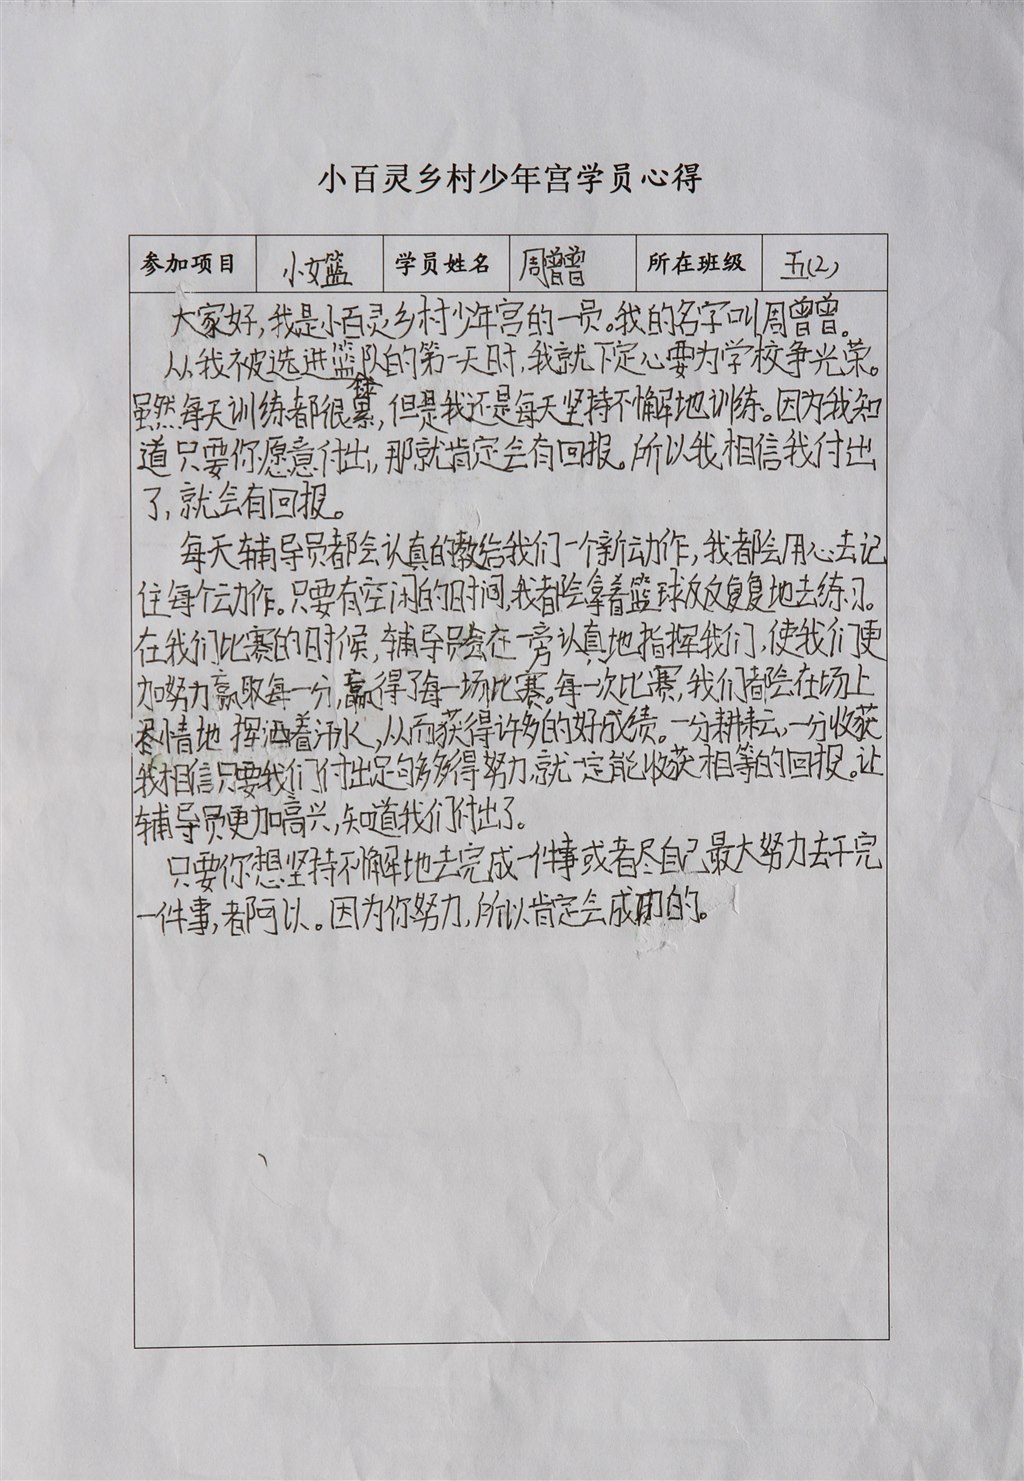 小百灵乡村少年宫学员心得
参加项目 小女篮 学员姓名 周曾曾 所在班级 五(2)
大家好,我是小百灵乡村少年宫的一员。我的名字叫周曾曾。
从我被选进篮队的第一天时,我就下定心要为学校争光荣。
虽然每天训练都很累,但是我还是每天坚持不懈地训练。因为我知
道只要你愿意付出,那就肯定会有回报。所以我相信我付出
了,就会有回报。
每天辅导员都会认真的教给我们一个新动作,我都会用心去记
住每个动作。只要有空闲的时间,我都会拿着篮球反反复复地去练习。
在我们比赛的时候,辅导员会在一旁认真地指挥我们,使我们更
加努力赢取每一分,赢得了每一场比赛。每一次比赛,我们都会在场上
尽情地挥洒着汗水,从而获得许多的好成绩。一分耕耘,一分收获
我相信只要我们付出足句多多得努力,就一定能收获相等的回报。让
辅导员更加高兴,知道我们付出了。
只要你想坚持不懈地去完成一件事或者尽自己最大努力去干完
一件事,都可以。因为你努力,所以肯定会成功的。